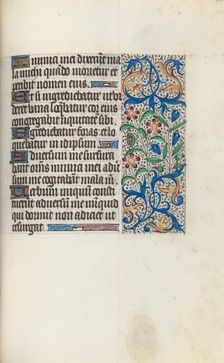 Inimici mei dixerūt ma
la michi quādo morietur et
peribit nomen eius.
Et si ingrediebatur ut vi
deret vana loq̄batur cor eius
congregavit iniquitatē sibi.
Egrediebatur foras et lo
quebatur in idipsum
Adversum me susurra
bant omēs inimici mei adver
sum me cogitabant mala m̄.
Verbum iniquum consti
tuerunt adversū me numquid
qui dormit non adiciet ut
resurgat